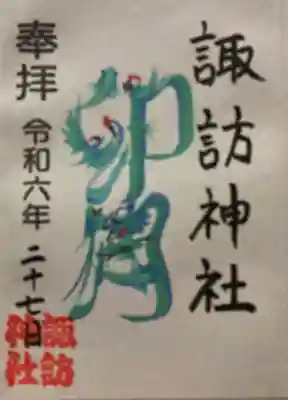 諏訪神社
卯月
奉拝
令和六年
二十七日
諏訪
神社